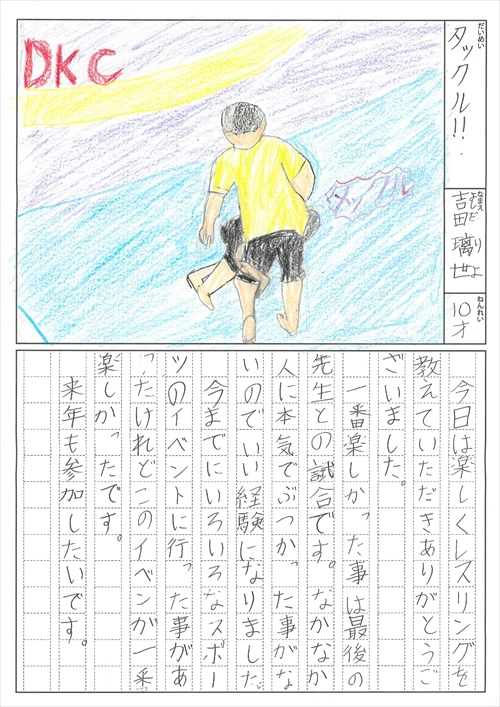 DKC
タックル
だいめい
タックル!!
なまえ
吉田 璃世
よしだ りよ
ねんれい
10才
今日は楽しくレスリングを
教えていただきありがとうご
ざいました。
一番楽しかった事は最後の
先生との試合です。なかなか
人に本気でぶつかった事がな
いのでいい経験になりました。
今までにいろいろなスポー
ツのイベントに行った事があ
ったけれどこのイベンが一番
楽しかったです。
来年も参加したいです。